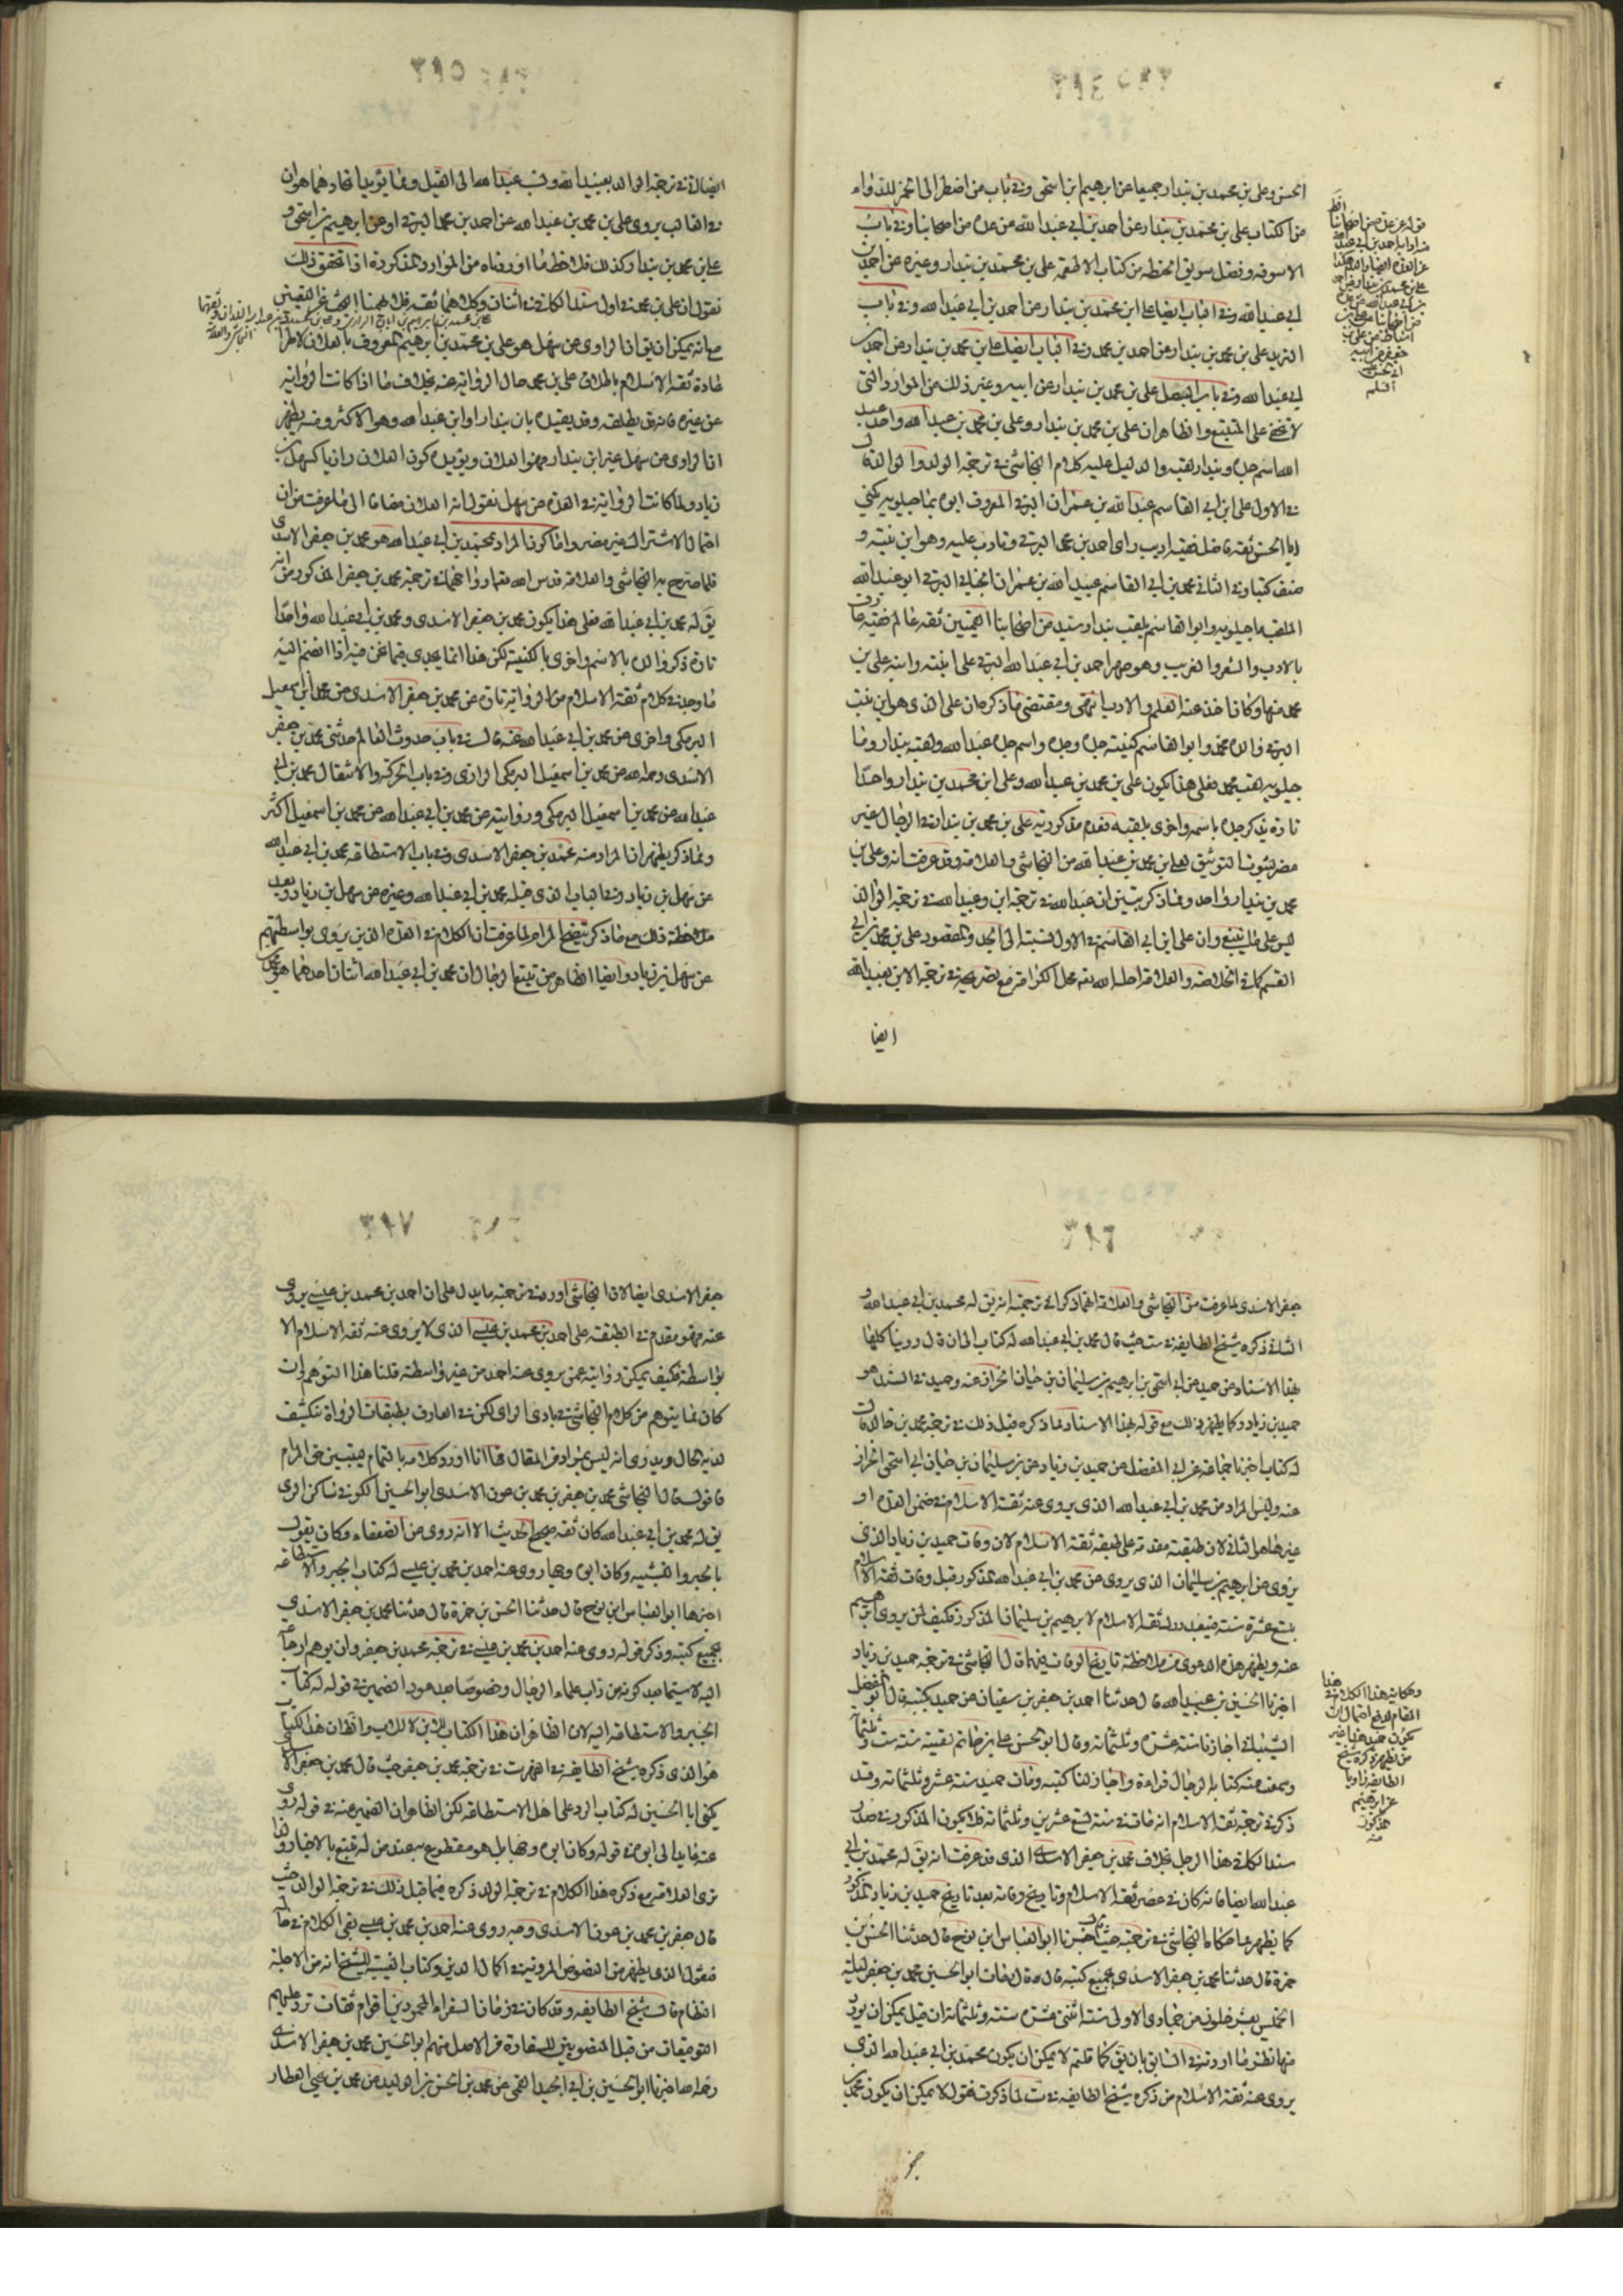 ٣٨٤
الحسن وعلى بن محمد بن بندار جميعا عن ابرهيم ابن اسحق وفي باب من اضطر الى الخمر للدواء
من الكتاب على بن محمد بن بندار عن احمد بن ابي عبد الله عن عدة من اصحابنا وفي باب
الاسوقة وفضل سويق الحنطة من كتاب الاطعمة على بن محمد بن بندار وغيره عن احمد بن
ابي عبد الله وفي الباب ايضا على ابن محمد بن بندار عن احمد بن ابي عبد الله وفي باب
الثريد على بن محمد بن بندار عن احمد بن محمد وفي الباب ايضا على بن محمد بن بندار عن احمد بن
ابي عبد الله وفي باب البصل على بن محمد بن بندار عن ابيه وغير ذلك من الموارد التي
لا تخفى على المتتبع والظاهر ان على بن محمد بن بندار وعلى بن محمد بن عبد الله واحد عبد
الله اسم جده وبندار لقبه والدليل عليه كلام النجاشي في ترجمة الولد والوالد قال
في الاول على ابن ابي القاسم عبد الله بن عمران البرقي المعروف ابوه بماجيلويه يكنى
ابا الحسن ثقة فاضل فقيه اديب راى احمد بن محمد البرقي وتادب عليه وهو ابن بنته و
صنف كتبا وفي الثاني محمد بن ابي القاسم عبيد الله بن عمران الجنابي البرقي ابو عبد الله
الملقب ماجيلويه وابو القاسم يلقب بندار سيد من اصحابنا القميين ثقة عالم فقيه عارف
بالادب والشعر والغريب وهو صهر احمد بن ابي عبد الله البرقي على ابنته وابنه على بن
محمد منها وكان اخذ عنه العلم والادب انتهى ومقتضى ما ذكر من ان على الذي هو ابن بنت
البرقي والده محمد وابو القاسم كنيته جده وجده واسم جده عبد الله ولقبه بندار وما
جيلويه لقب محمد فعلى هذا يكون على بن محمد بن عبد الله وعلى ابن محمد بن بندار واحدا
تارة يذكر جده باسمه واخرى بلقبه فعدم مذكورية على بن محمد بن بندار في الرجال غير
مضر لثبوت التوثيق لعلي بن محمد بن عبد الله من النجاشي والعلامة وقد عرفت انه وعلى بن
محمد بن بندار واحد ومما ذكر يتبين ان عبد الله في ترجمة ابن وعبيد الله في ترجمة الوالد
ليس على ما ينبغي وان على ابن ابي القاسم في الاول نسبة الى الجد والمقصود على بن محمد بن ابي
القسم كما في الخلاصة والعلامة احله الله تعه محل الكرامة مع تصريحه في ترجمة الابن بعبد الله
ايضا
٣٨٥
ايضا قال في ترجمة الوالد بعبيد الله ونسب عبد الله الى القيل ومما يؤيد اتحادهما هو ان
في الغالب يروى على بن محمد بن عبد الله عن احمد بن محمد البرقي او عن ابرهيم بن اسحق و
على بن محمد بن بندار كذلك فلاحظ ما اوردناه من الموارد المذكورة اذا تحقق ذلك
نقول ان على بن محمد في اول سند الكافي اثنان وكلاهما ثقة
مع انه يمكن ان يق ان الراوى عن سهل هو على بن محمد بن ابرهيم المعروف بالعلان لاطراد
عادة ثقة الاسلام باطلاق على بن محمد حال الرواية عنه بخلاف ما اذا كانت الرواية
عن غيره فانه قد يطلقه وقد يقيده بابن بندار او ابن عبد الله وهو الاكثر ومنه يظهر
ان الراوى عن سهل غير ابن بندار فهو العلان ويؤيده كون العلان رازيا كسهل بن
زياد ولما كانت الرواية في العدة عن سهل نقول انه العلان مضافا الى ما عرفت من ان
احتمال الاشتراك غير مضر واما كون المراد بمحمد بن ابي عبد الله هو محمد بن جعفر الاسدى
فلما صرح به النجاشي والعلامة قدس الله تعه ارواحهما في ترجمة محمد بن جعفر المذكور من انه
يق له محمد بن ابي عبد الله فعلى هذا يكون محمد بن جعفر الاسدى ومحمد بن ابي عبد الله واحدا
تارة ذكر والده بالاسم واخرى بالكنية لكن هذا انما يجدى فيما نحن فيه اذا انضم اليه
ما وجد في كلام ثقة الاسلام من الرواية تارة عن محمد بن جعفر الاسدى عن محمد ابن اسمعيل
البرمكي واخرى عن محمد بن ابي عبد الله عنه قال في باب حدوث العالم حدثني محمد بن جعفر
الاسدى رحمه الله عن محمد بن اسمعيل البرمكي الرازى وفي باب الحركة والانتقال محمد بن ابي
عبد الله عن محمد بن اسمعيل البرمكي وروايته عن محمد بن ابي عبد الله عن محمد بن اسمعيل اكثر
ومما ذكر يظهر ان المراد منه محمد بن جعفر الاسدى وفي باب الاستطاعة محمد بن ابي عبد الله
عن سهل بن زياد وفي الباب الذى قبله محمد بن ابي عبد الله وغيره عن سهل بن زياد وبعد
ملاحظة ذلك مع ما ذكر يتضح المرام لما عرفت ان الكلام في العدة الذين يروى بواسطتهم
عن سهل بن زياد وايضا الظاهر من تتبع الرجال ان محمد بن ابي عبد الله اثنان احدهما هو محمد بن
٣٨٦
جعفر الاسدى لما عرفت من النجاشي والعلامة انهما ذكرا في ترجمته انه يق له محمد بن ابي عبد الله و
الثاني ذكره شيخ الطايفة في ست حيث قال محمد بن ابي عبد الله له كتاب الى ان قال روينا كلها
بهذا الاسناد عن حميد عن ابي اسحق بن ابرهيم بن سليمان بن حيان الخزاز عنه وحميد في السند هو
حميد بن زياد وكما يظهر ذلك مع قوله بهذا الاسناد مما ذكره قبل ذلك في ترجمة محمد بن خالد قال
له كتاب اخبرنا جماعة عن ابي المفضل عن حميد بن زياد عن بن سليمان بن حيان ابي اسحق الخزاز
عنه وليس المراد من محمد بن ابي عبد الله الذى يروى عنه ثقة الاسلام في ضمن العدة او
غيرها هو الثاني لان طبقته مقدمة على طبقة ثقة الاسلام لان وفات حميد بن زياد الذى
يروى عن ابرهيم بن سليمان الذى يروى عن محمد بن ابي عبد الله المذكور قبل وفات ثقة الاسلام
بتسع عشرة سنة فيبعد درك ثقة الاسلام لابرهيم بن سليمان المذكور فكيف لمن يروى ابرهيم
عنه ويظهر هذه الدعوى من ملاحظة تاريخ الوفات فيهما قال النجاشي في ترجمة حميد بن زياد
اخبرنا الحسين بن عبيد الله قال حدثنا احمد بن جعفر بن سفيان عن حميد بكتبه قال ابو المفضل
الشيباني اجازنا سنة عشرة وثلثمائة وقال ابو الحسن على بن حاتم لقيته سنة ست وثلثمائة
وسمعت منه كتابه الرجال قراءة واجاز لنا كتبه ومات حميد سنة عشر وثلثمائة وقد
ذكر في ترجمة ثقة الاسلام انه مات في سنة تسع عشرين وثلثمائة فلا يكون المذكور في صدر
سند الكافي هذا الرجل بخلاف محمد بن جعفر الاسدى الذى قد عرفت انه يق له محمد بن ابي
عبد الله ايضا فانه كان في عصر ثقة الاسلام وتاريخ وفاته بعد تاريخ حميد بن زياد المذكور
كما يظهر مما حكاه النجاشي في ترجمته حيث قال اخبرنا ابو العباس ابن نوح قال حدثنا الحسن بن
حمزة قال حدثنا محمد بن جعفر الاسدى بجميع كتبه قال وقال مات ابو الحسين محمد بن جعفر ليلة
الخميس لعشر خلون من جمادى الاولى سنة اثنتى عشرة سنة وثلثمائة ان قيل يمكن ان يورد
فيها نظير ما اوردته في السابق بان يق كما قلتم لا يمكن ان يكون محمد بن ابي عبد الله الذى
يروى عنه ثقة الاسلام من ذكره شيخ الطايفة في ست لما ذكر فنقول لا يمكن ان يكون محمد بن
٣٨٧
جعفر الاسدى ايضا لان النجاشي اورد في ترجمته ما يدل على ان احمد بن محمد بن عيسى يروى
عنه فهو مقدم في الطبقة على احمد بن محمد بن عيسى الذى لا يروى عنه ثقة الاسلام الا
بواسطة فكيف يمكن روايته عمن يروى عنه احمد من غير واسطة قلنا هذا التوهم وان
كان مما يتوهم من كلام النجاشي في بادى الراى لكن في العارف بطبقات الرواة ينكشف
لديه الحال ويدرى انه ليس بمراد في المقال فها انا اورد كلامه بالتمام ليتبين حق المرام
فاقول قال النجاشي محمد بن جعفر بن محمد بن عون الاسدى ابو الحسين الكوفي ساكن الرى
يق له محمد بن ابي عبد الله كان ثقة صحيح الحديث الا انه روى عن الضعفاء وكان يقول
بالجبر والتشبيه وكان ابوه وجها روى عنه احمد بن محمد بن عيسى له كتاب الجبر والاستطاعة
اخبرنا ابو العباس ابن نوح قال حدثنا الحسن بن حمزة قال حدثنا محمد بن جعفر الاسدى
بجميع كتبه وذكر قوله روى عنه احمد بن محمد بن عيسى في ترجمة محمد بن جعفر وان يوهم ارجاعه
اليه لاسيما بعد كونه من داب علماء الرجال وخصوصا بعد عود الضمير في قوله له كتاب
الجبر والاستطاعة اليه لان الظاهر ان هذا الكتاب للابن لا للاب والظ ان هذا الكتاب
هو الذى ذكره شيخ الطايفة في الفهرست في ترجمة محمد بن جعفر حيث قال محمد بن جعفر الاسدى
يكنى ابا الحسين له كتاب الرد على اهل الاستطاعة لكن الظاهر ان الضمير عنه في قوله روى
عنه عايد الى ابوه في قوله وكان ابوه وجها بل هو مقطوع به عند من له تتبع بالاخبار ولذا
ترى العلامة مع ذكره هذا الكلام في ترجمة الولد ذكره فيما قبل ذلك في ترجمة الوالد حيث
قال جعفر بن محمد بن عون الاسدى وجه روى عنه احمد بن محمد بن عيسى بقى الكلام في حاله
فنقول الذى يظهر من النصوص المروية في اكمال الدين وكتاب الغيبة للشيخ انه من الاجلة
العظام قال شيخ الطايفة وقد كان في زمان السفراء المحمودين اقوام ثقات ترد عليهم
التوقيعات من قبل المنصوبين للسفارة من الاصل منهم ابو الحسين محمد بن جعفر الاسدى
رحمه الله اخبرنا ابو الحسين بن ابي الجيد القمي عن محمد بن الحسن بن الوليد عن محمد بن يحيى العطار